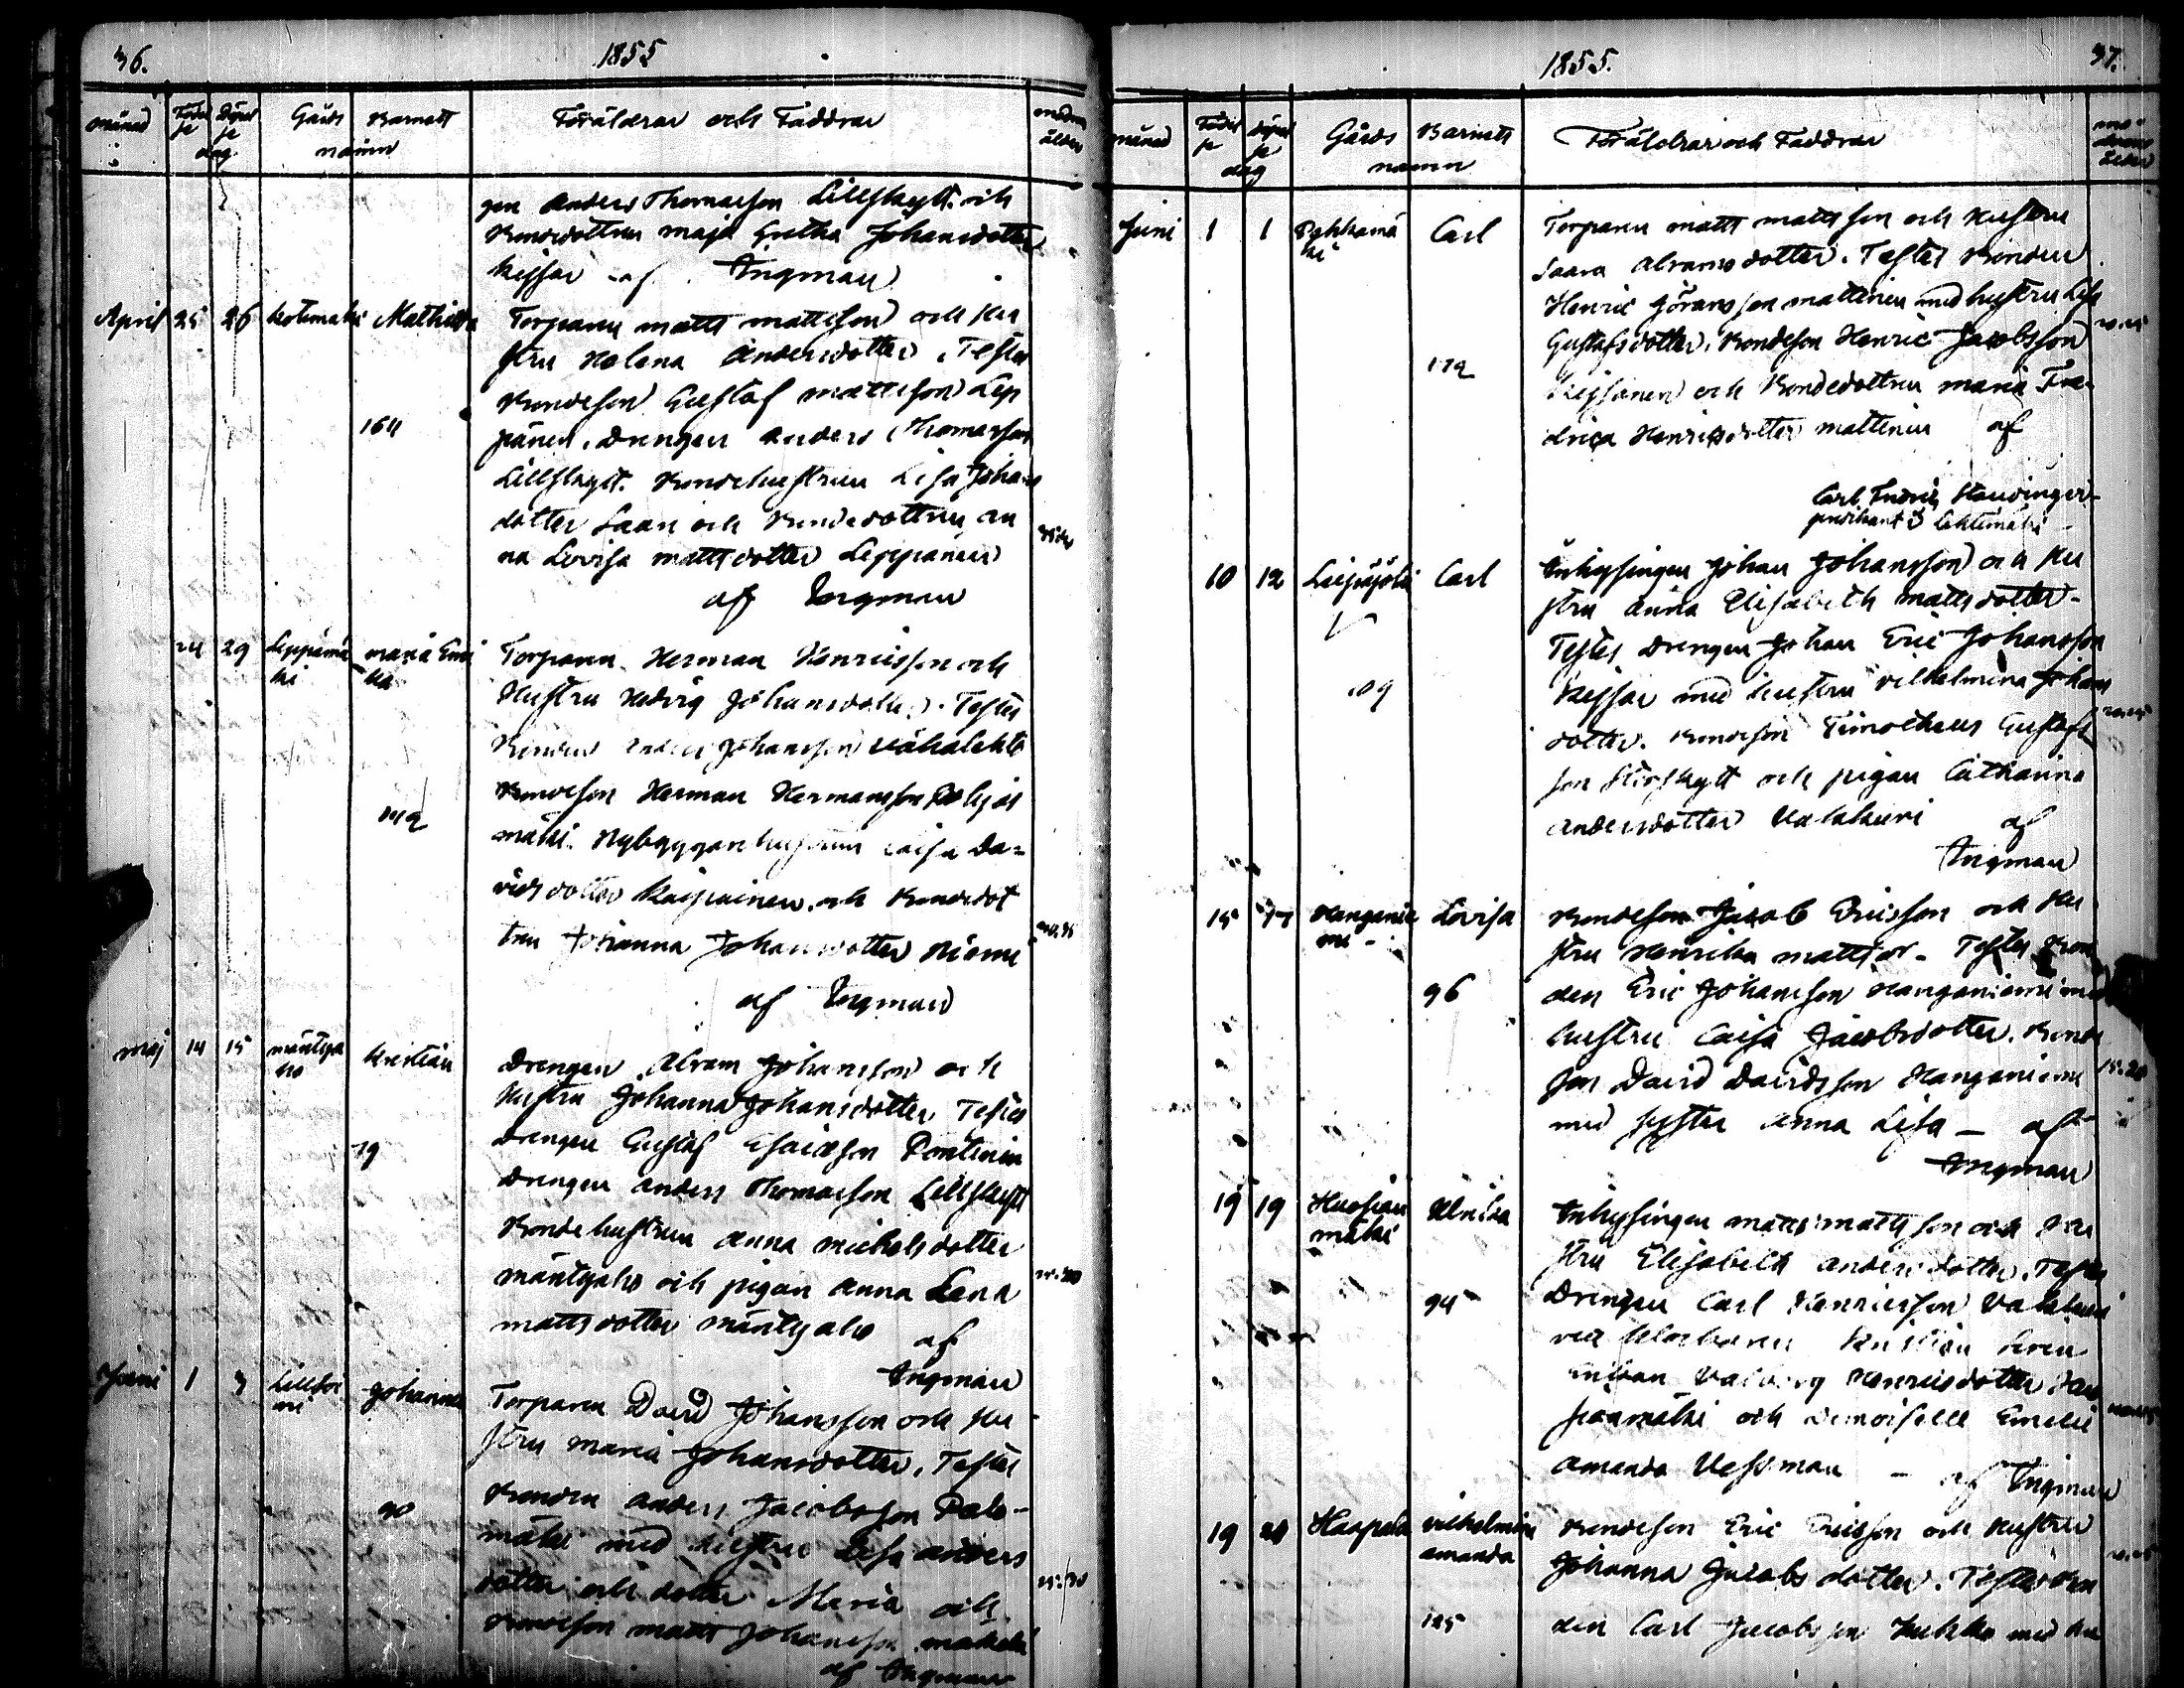 36.
1855
månad
Födel se
Döpel se
dag
Gårds
Barnets
namn
Föräldrar och Faddrar
modrens ålder
gen Anders Thomasson Lillskytt. och
Bondedottren Maja Gretha Johansdotter
Keissar af Ingman
April 25 26 Mathilda
Torparen Matts Mattsson och Hu
stru Helena Andersdotter. Testes
Bondeson Gustaf Mattsson Lep
pänen. Drengen Anders Thomasson
164
Lillskytt. Bondehustrun Lisa Johans
dotter Laari och Bondedottren An
na Lovisa Mattsdotter Leppänen
af Ingman
24 29 Leppämä
ki
Maria Emi
lia
Torparen Herman Henricsson och
Hustru Hedvig Johansdotter. Testes
Bonden Johansson Vähälehto
Bondeson Herman Hermansson
mäki. Nybyggarehustrun Caisa Da-
vidsdotter och Bondedot
tren Johanna Johansdotter Niemi
af Ingman
Maj 14 15 Mäntya
ho
Kristian
Drengen Abram Johansson och
Hustru Johanna Johansdotter Testes
Drengen Gustaf Esaiasson Pontinen
19
Drengen Anders Thomasson Lillskytt
Bondehustrun Anna Michelsdotter
Mäntyaho och pigan Anna Lena
Mattsdotter Mäntyaho af
Ingman
Juni 1 3 Johanna
Torparen David Johansson och Hu
stru Maria Johansdotter. Testes
Bonden Anders Jacobsson Palo-
90
mäki med hustru Lisa Anders
dotter och dotter Maria och
Bondeson Matts Johansson
af Ingman
1855.
37.
månad
Födel se
döpel se
dag
Gårds
Barnets
namn
Föräldrar och Faddrar
mo
drens
ålder
Juni 1 1 Pykkämä
ki
Carl
Torparen Matts Mattsson och Hustru
Saara Abramsdotter. Testes Bonden
Henric Göransson Mattinen med hustru Lisa
Gustafsdotter. Bondeson Henric Jacobsson
och Bondedottren Maria Fre
drica Henricsdotter Mattinen af
Carl Fredric
predikant i Lehtimäki
10 12 Carl
Inhysingen Johan Johansson och Hu
stru Anna Elisabeth Mattsdotter.
Testes Drengen Johan Eric Johansson
109
Keissar med hustru Vilhelmina Johans
dotter. Bondeson Timotheus Gustafs
son Storskytt och pigan Catharina
Andersdotter Valkkuri af
Ingman
15 17 Hanganie
mi
Lovisa
Bondeson Jacob Ericsson och Hu
stru Henrika Mattsdr. Testes Bon
96
den Eric Johansson Hanganiemi med
hustru Caisa Jacobsdotter. Bonde
son David Davidsson Hanganiemi
15.20
med syster Anna Lisa – af
Ingman
19 19 Huosian
mäki
Ulrika
Inhysingen Matts Mattsson och Hu
stru Elisabeth Andersdotter. Testes
94
Drengen Carl Henricsson Valkkuri
Valborg Henricsdotter
och Demoiselle Emelie
Amanda Vessman – af Ingman
19 Haapala
Vilhelmina
Amanda
Bondeson Eric Ericsson och Hustru
Johanna Jacobsdotter. Testes Bon
125
den Carl Jacobsson med hu